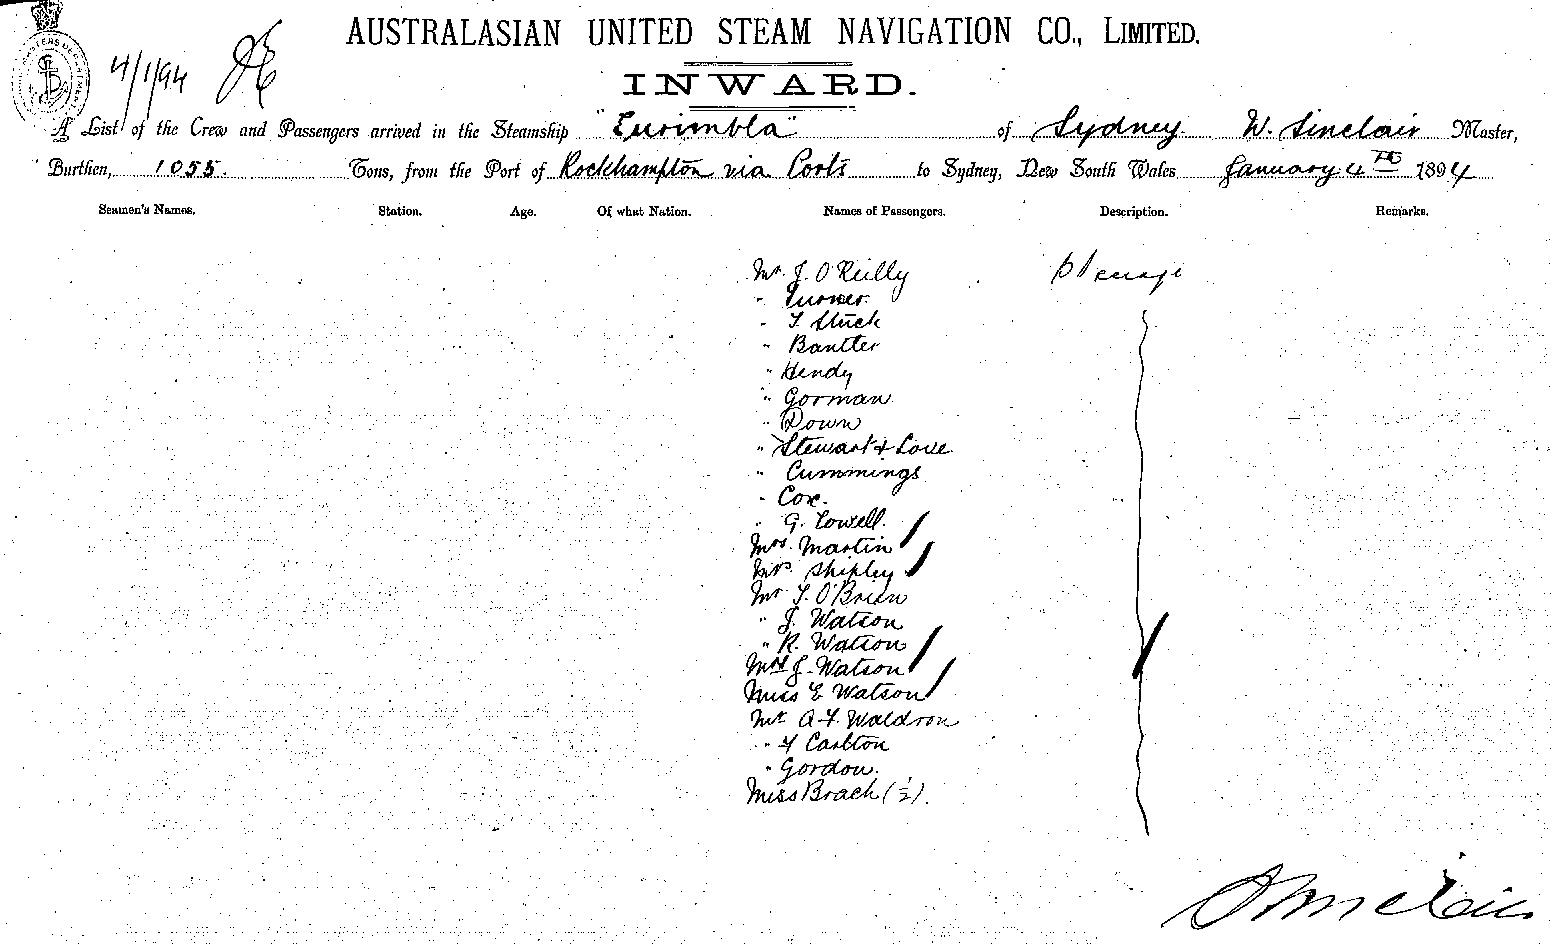 AUSTRALASIAN UNITED STEAM NAVIGATION CO., LIMITED.
4/1/94
INWARD.
A List of the Crew and Passengers arrived in the Steamship "Eurimbla" of Sydney. W. Sinclair Master,
Burthen, 1055. Tons, from the Port of Rockhampton via Ports to Sydney, New South Wales January 4TH 1894
Seamen's Names. Station. Age. Of what Nation. Names of Passengers. Description. Remarks.
Mr. J. O'Reilly Steerage
" Turner.
" T. Stuck
" Bantter
" Hendy
" Gorman
" Down
" Stewart & Love
" Cummings
" Cox.
" G. Lowell.
Mrs. Martin
Mrs. Shipley
Mr. T. O'Brien
" J. Watson
" R. Watson
Mrs J. Watson
Miss E Watson
Mr. A F Waldron
" F Carlton
" Gordon.
Miss Brach (½).
W Sinclair